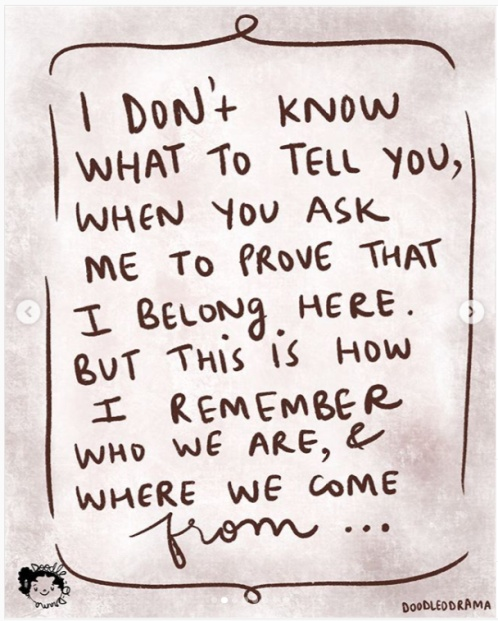 I DON't KNOW
WHAT TO TELL YOU,
WHEN YOU ASK
ME TO PROVE THAT
I BELONG HERE.
BUT THIS IS HOW
I REMEMBER
WHO WE ARE, &
WHERE WE COME
from ...
Doodled Drama
DOODLEDDRAMA